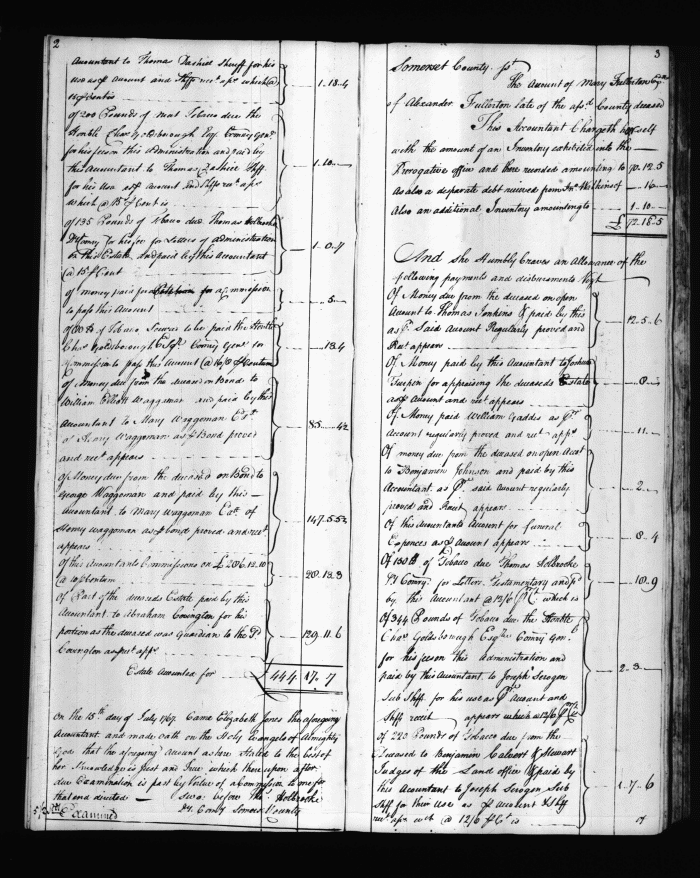 2
Accountant to Thomas Dashiell Sheriff for his
use as ₱ Account and Shffs rect. apr. which @
₱ Cent is 1.18.4
of 200 Pounds of Tobacco due the
Honble Chas. Goldsborough Esq. Comry Genl.
for his fees on this Administration and paid by
this Accountant to Thomas Dashiell Shff.
for his Use as ₱ account and Shffs rect. apr.
which @ 15 ₱ Cent is 1.10.
of 135 Pounds of Tobacco due Thomas Holbrooke
Dt Comry for his fees for Letters of administration
on this Estate, and paid by this Accountant
@ 15 ₱ Cent 1.0.4
of money paid for a Commission
to pass this Account 5
of Tobacco to be paid the Honble
Chas Goldsborough Esqr. Comry Genl. for
Commission to pass this Account @ ₱ Centum 18.4
of Money due from the deceased on Bond to
William Elliott Waggaman and paid by this
Accountant to Mary Waggoman Exx.
of Henry Waggoman as ₱ Bond proved
and rect appears 85.
of Money due from the deceased on Bond to
George Waggoman and paid by this
Accountant, to Mary Waggoman Exx. of
Henry Waggoman as ₱ bond proved and rect
appears 147.5.5
of this Accountants Commissions on £206.12.10
@ 10 ₱ Centum 20.13.3
of Part of the deceaseds Estate paid by this
Accountant, to Abraham Covington for his
portion as the deceased was Guardian to the sd.
Covington as ₱ rect appr. 129.11.6
Estate Accounted for £444.17.7
On the 15th day of July 1767. Came Elizabeth Jones the aforegoing
Accountant, and made oath on the Holy Evangels of Almighty
God that the aforegoing account as here Stated to the best of
her Knowledge is Just and True, which thereupon after
due Examination is past by Virtue of a Commission to me for
that end directed Sworn before Tho. Holbrooke
Dt. Comry Somerst County
Examined
3
Somerset County. Sst.
The Account of Mary Fullerton
of Alexander Fullerton late of the afsd. County deceased
This Accountant Chargeth herself
with the amount of an Inventory exhibited into the
Prerogative office and there recorded amounting to 70.12.5
As also a desperate debt received from Jno. 16
Also an additional Inventory amounting to 1.10
£72.18.5
And she Humbly Craves an Allowance of the
following payments and disbursments Vizt
Of Money due from the deceased on open
Account to Thomas Tomkins & paid by this
as ₱ Said Account Regularly proved and
Rect appears 12.5.6
Of Money paid by this Accountant to Joshua
for appraising the deceaseds Estate
as ₱ Account and rect appears 8
Of Money paid William Gaddis as ₱
Account regularly proved and rect. appr. 11
Of money due from the deceased on open Acct
to Benjamin Johnson and paid by this
Accountant as ₱ said account regularly
proved and Rect appears 2
Of this Accountants Account for funeral
Expences as ₱ Account appears 8.4
Of 130 lb. of Tobacco due Thomas Holbrooke
Dt Comry. for Letters Testamentary and pd
by this Accountant @ 12/6 ₱ Ct. which is 10.9
Of 344 Pounds of Tobacco due the Honble
Chas Goldsborough Esqr. Comry Gen.
for his fees on this Administration and
paid by this Accountant, to Joseph Scrogen
Sub Shff. for his use as ₱ Account and
Shffs receit appears which @ 12/6 ₱ Ct. 2.3
of 220 Pounds of Tobacco due from the
Deceased to Benjamin Calvert & Stewart
Judges of the Land office & paid by
this Accountant to Joseph Scrogen Sub
Shff for their Use as ₱ Account & Shff
rect. apr. wch @ 12/6 ₱ Ct is 1.7.6
of